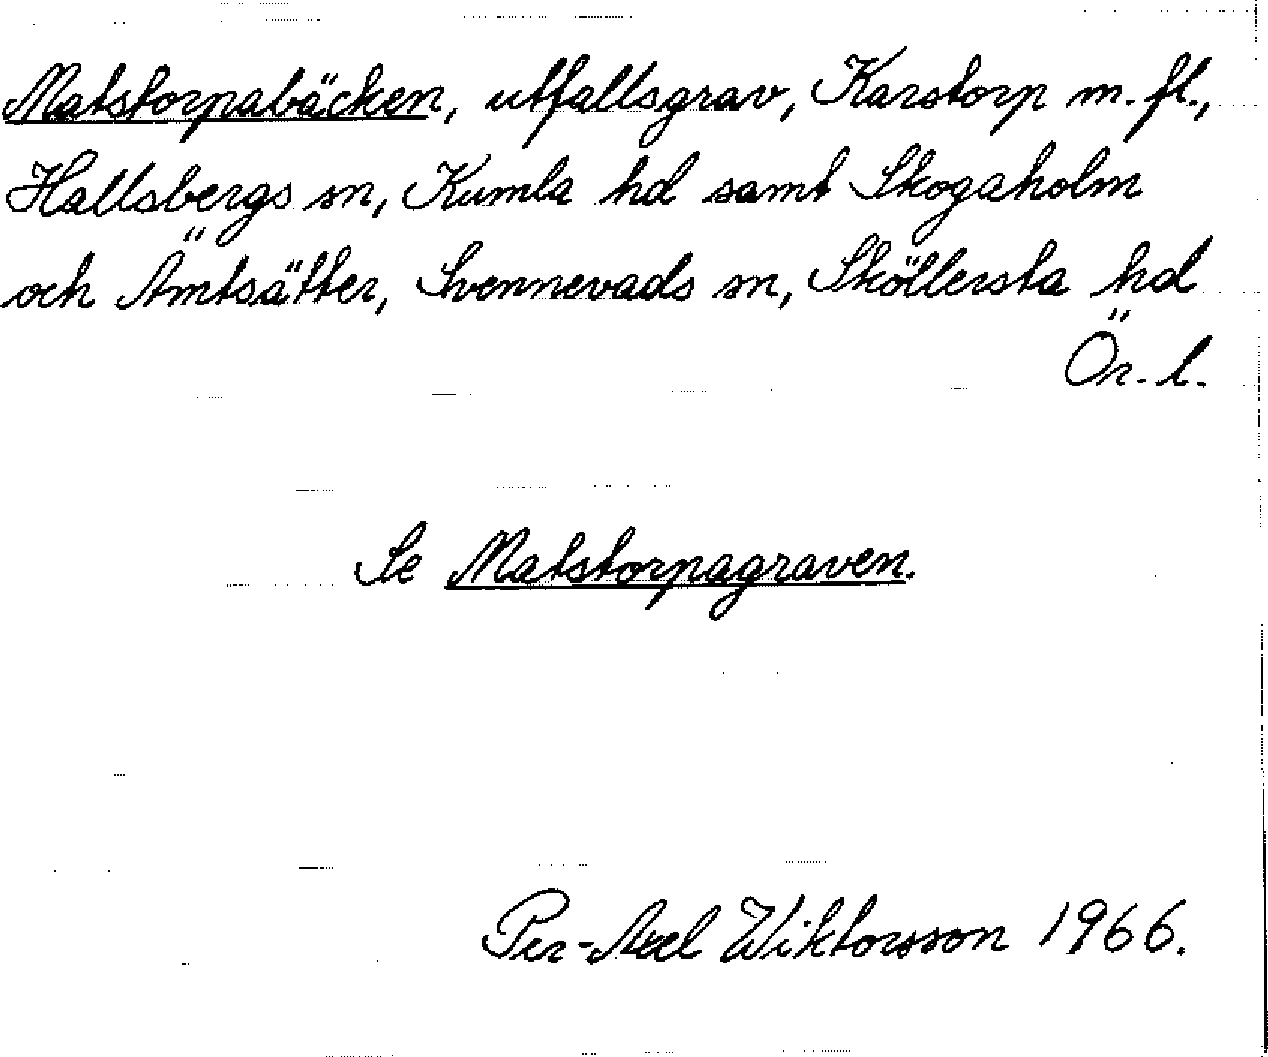 Matstorpabäcken, utfallsgrav, Karstorp m.fl.,
Hallsbergs sn, Kumla hd samt Skogaholm
och Ämtsätter, Svennevads sn, Sköllersta hd
Ör. l.
Se Matstorpagraven.
Per-Axel Wiktorsson 1966.